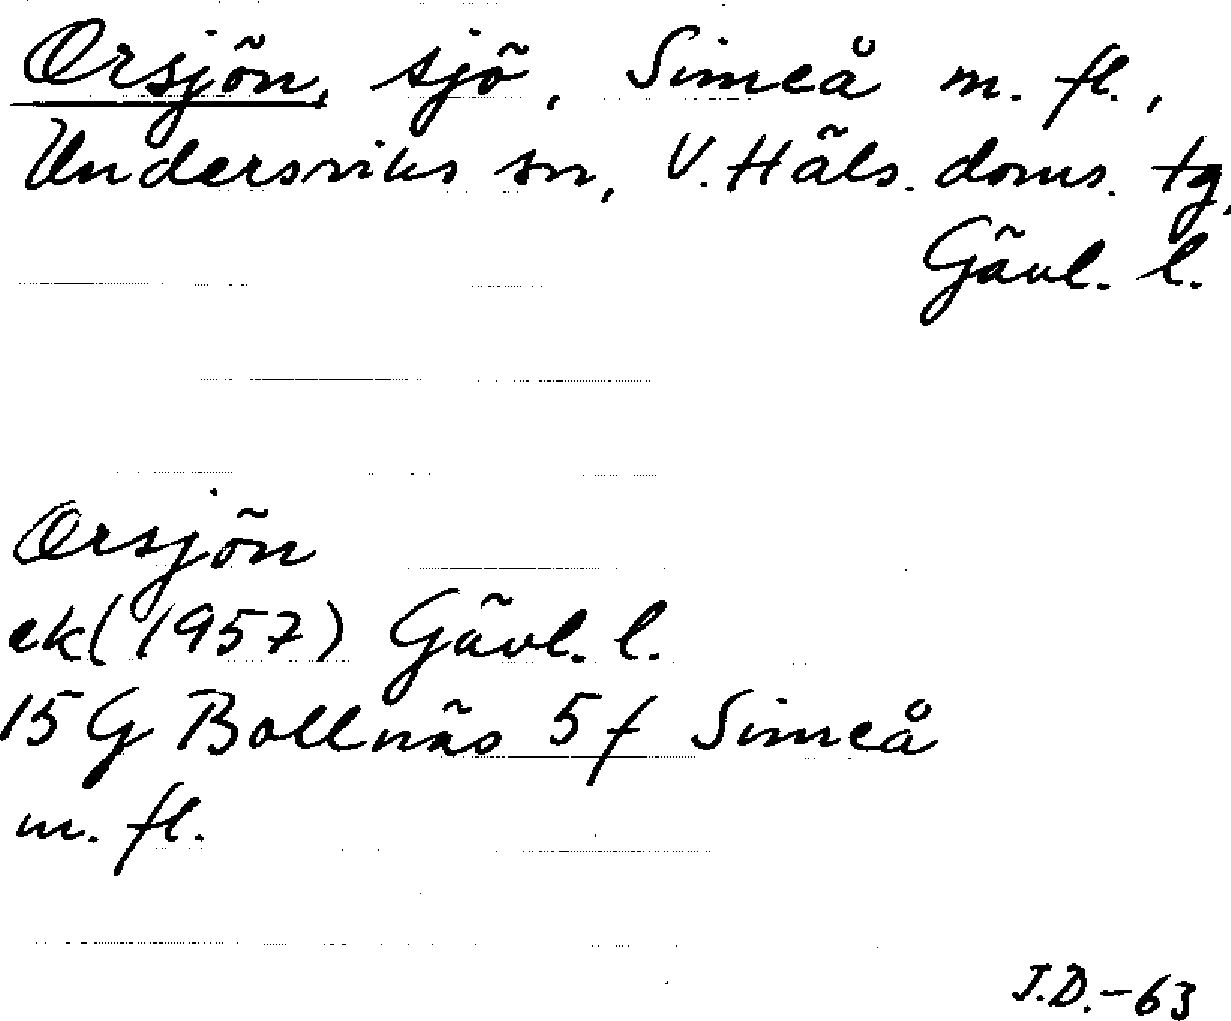 Orsjön, sjö, Simeå m. fl.,
Undersviks sn, V. Häls. doms. tg,
Gävl. l.
Orsjön
ek (1957) Gävl. l.
15 G Bollnäs 5 f Simeå
m. fl.
J.D.-63